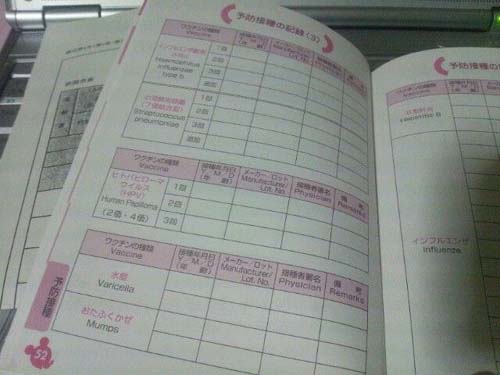 予防接種の記録(3)
ワクチンの種類 接種年月日 メーカー/ロット 接種者署名 備考
Vaccine Y/M/D Manufacturer/ Physician Remarks
(年齢) Lot. No.
インフルエンザ菌b型
(Hib)
Haemophilus
influenzae
type b
1回
2回
3回
追加
小児肺炎球菌
(7価結合型)
Streptococcus
pneumoniae
1回
2回
3回
追加
ワクチンの種類 接種年月日 メーカー/ロット 接種者署名 備考
Vaccine Y/M/D Manufacturer/ Physician Remarks
(年齢) Lot. No.
ヒトパピローマ
ウイルス
(HPV)
Human Papilloma
(2価・4価)
1回
2回
3回
ワクチンの種類 接種年月日 メーカー/ロット 接種者署名 備考
Vaccine Y/M/D Manufacturer/ Physician Remarks
(年齢) Lot. No.
水痘
Varicella
おたふくかぜ
Mumps
予防接種
52
予防接種の
B型肝炎
Hepatitis B
インフルエンザ
Influenza